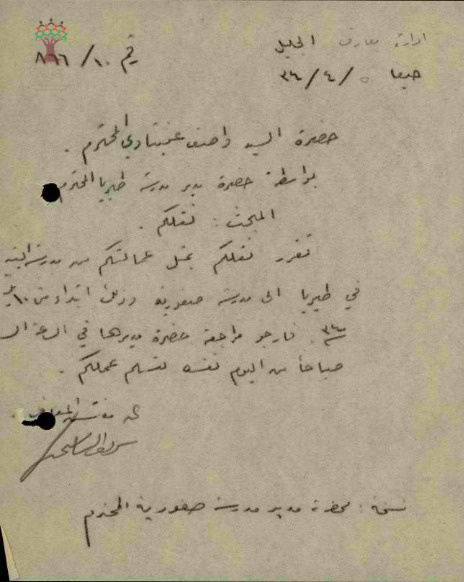 ادارة معارف الجليل
حيفا ٥/٤/٣٤
رقم ١٠/٨٩٦
حضرة السيد واصف عنبتاوي المحترم .
بواسطة حضرة مدير مدرسة طبريا المحترم
المبحث : نقلكم .
تقرر نقلكم بمثل عمالتكم من مدرسة البنين
في طبريا الى مدرسة صفورية وذلك ابتداء من
فارجو مراجعة حضرة مديرها في الساعة
صباحا من اليوم نفسه لتسلم عملكم .
عن مفتش المعارف
نسخة : لحضرة مدير مدرسة صفورية المحترم